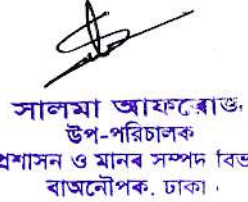 সালমা আফরোজ
উপ-পরিচালক
প্রশাসন ও মানব সম্পদ বিভ
বাঅনৌপক, ঢাকা।